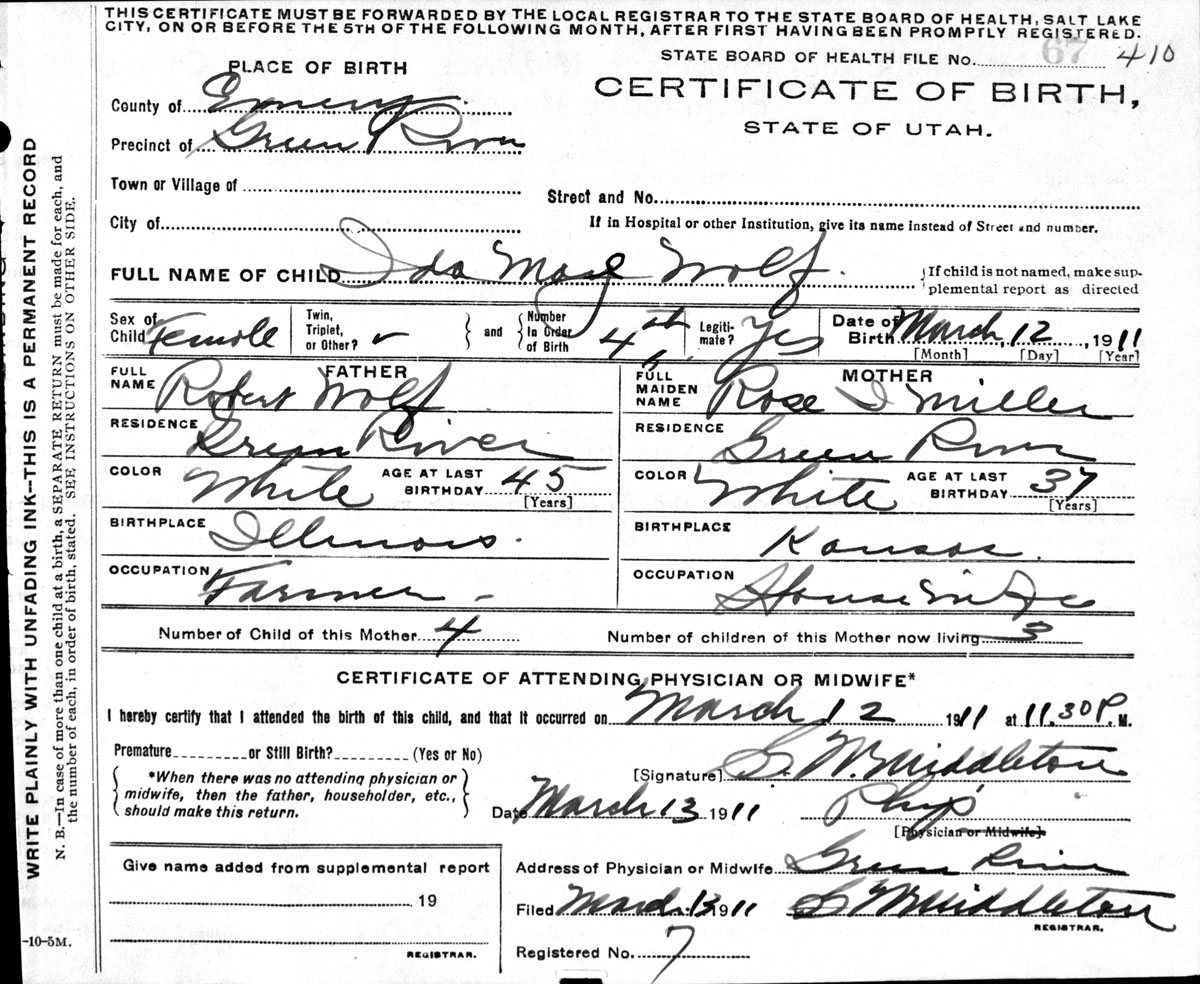 THIS CERTIFICATE MUST BE FORWARDED BY THE LOCAL REGISTRAR TO THE STATE BOARD OF HEALTH, SALT LAKE
CITY, ON OR BEFORE THE 5TH OF THE FOLLOWING MONTH, AFTER FIRST HAVING BEEN PROMPTLY REGISTERED.
STATE BOARD OF HEALTH FILE No. 67 410
PLACE OF BIRTH
CERTIFICATE OF BIRTH,
STATE OF UTAH.
County of Emery
Precinct of Green River
Town or Village of
Street and No.
City of
If in Hospital or other Institution, give its name instead of Street and number.
FULL NAME OF CHILD Ida May Wolf
{If child is not named, make sup-
plemental report as directed
Sex of Child Female
Twin, Triplet, or Other?
and
Number In Order of Birth 4th
Legiti-mate? Yes
Date of Birth March, 12, 1911
[Month] [Day] [Year]
FATHER
FULL NAME Robert Wolf
RESIDENCE Green River
COLOR White AGE AT LAST BIRTHDAY 45 [Years]
BIRTHPLACE Illinois.
OCCUPATION Farmer -
MOTHER
FULL MAIDEN NAME Rose I Miller
RESIDENCE Green River
COLOR White AGE AT LAST BIRTHDAY 37 [Years]
BIRTHPLACE Kansas.
OCCUPATION Housewife
Number of Child of this Mother 4 Number of children of this Mother now living 3
CERTIFICATE OF ATTENDING PHYSICIAN OR MIDWIFE*
I hereby certify that I attended the birth of this child, and that it occurred on March 12 1911 at 11.30 P. M.
Premature or Still Birth? (Yes or No)
*When there was no attending physician or
midwife, then the father, householder, etc.,
should make this return.
[Signature] Middleton
Date March 13 1911 Phys
[Physician or Midwife]
Give name added from supplemental report
19
REGISTRAR.
Address of Physician or Midwife Green River
Filed March 13 1911 Middleton
REGISTRAR.
Registered No. 7
WRITE PLAINLY WITH UNFADING INK—THIS IS A PERMANENT RECORD
N. B.—In case of more than one child at a birth, a SEPARATE RETURN must be made for each, and
the number of each, in order of birth, stated. SEE INSTRUCTIONS ON OTHER SIDE.
-10-5M.